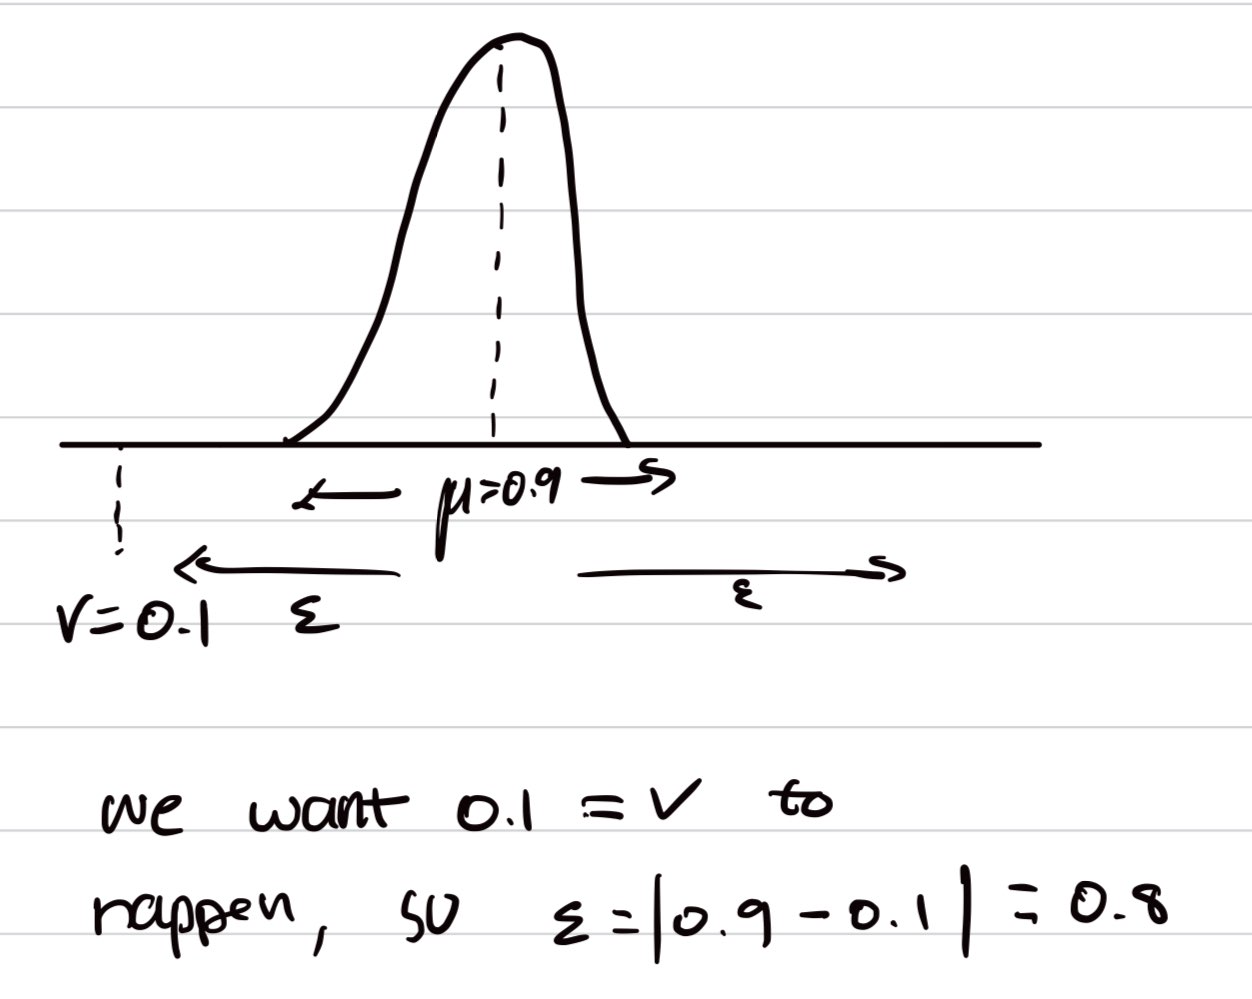 μ=0.9
ε
V=0.1 ε
we want 0.1 = V to
happen, so ε=|0.9-0.1| = 0.8